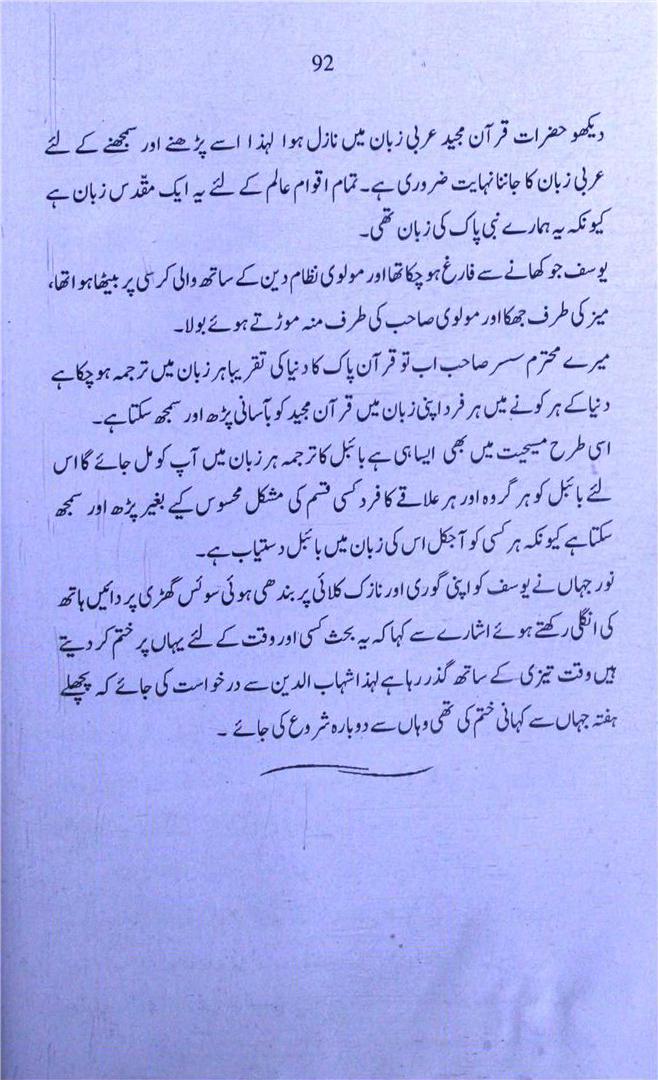 92
دیکھو حضرات قرآن مجید عربی زبان میں نازل ہوا لہذا اسے پڑھنے اور سمجھنے کے لئے
عربی زبان کا جاننا نہایت ضروری ہے۔ تمام اقوام عالم کے لئے یہ ایک مقدّس زبان ہے
کیونکہ یہ ہمارے نبی پاک کی زبان تھی۔
یوسف جو کھانے سے فارغ ہو چکا تھا اور مولوی نظام دین کے ساتھ والی کرسی پر بیٹھا ہوا تھا،
میز کی طرف جھکا اور مولوی صاحب کی طرف منہ موڑتے ہوئے بولا۔
میرے محترم سسر صاحب اب تو قرآن پاک کا دنیا کی تقریبا ہر زبان میں ترجمہ ہو چکا ہے
دنیا کے ہر کونے میں ہر فرد اپنی زبان میں قرآن مجید کو بآسانی پڑھ اور سمجھ سکتا ہے۔
اسی طرح مسیحیت میں بھی ایسا ہی ہے بائبل کا ترجمہ ہر زبان میں آپ کو مل جائے گا اس
لئے بائبل کو ہر گروہ اور ہر علاقے کا فرد کسی قسم کی مشکل محسوس کیے بغیر پڑھ اور سمجھ
سکتا ہے کیونکہ ہر کسی کو آجکل اس کی زبان میں بائبل دستیاب ہے۔
نور جہاں نے یوسف کو اپنی گوری اور نازک کلائی پر بندھی ہوئی سوئس گھڑی پر دائیں ہاتھ
کی انگلی رکھتے ہوئے اشارے سے کہا کہ یہ بحث کسی اور وقت کے لئے یہاں پر ختم کر دیتے
ہیں وقت تیزی کے ساتھ گذر رہا ہے لہذا شہاب الدین سے درخواست کی جائے کہ پچھلے
ہفتہ جہاں سے کہانی ختم کی تھی وہاں سے دوبارہ شروع کی جائے ۔